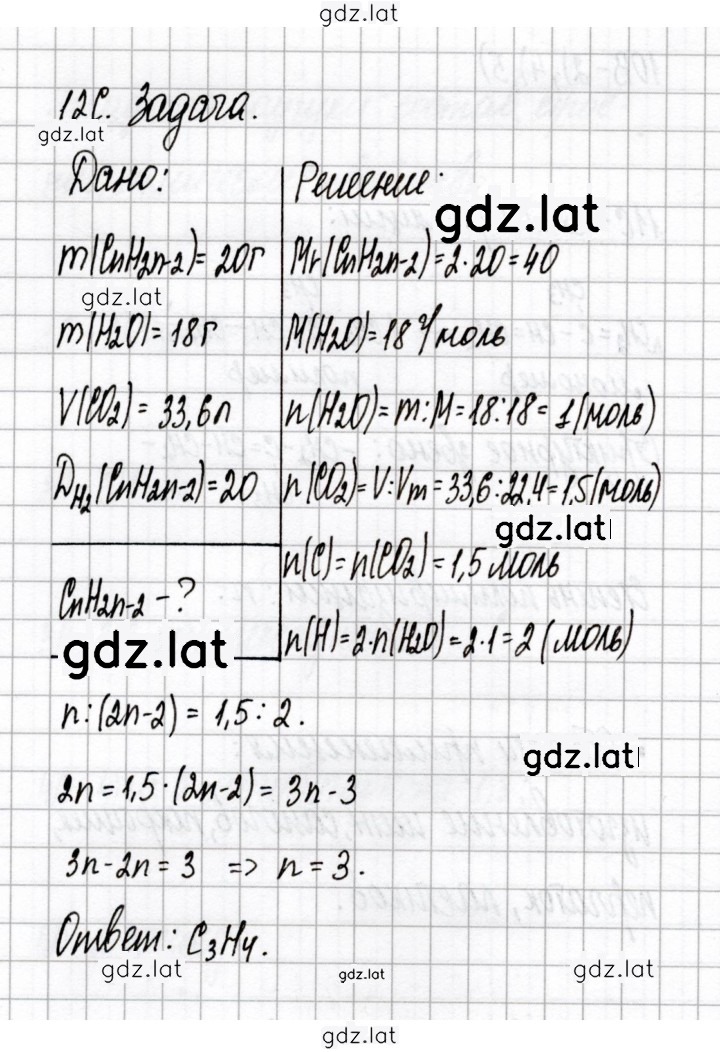 gdz.lat
12С. Задача.
gdz.lat
Дано:
Решение:
gdz.lat
m(CnH2n-2) = 20г
Mr(CnH2n-2) = 2·20 = 40
gdz.lat
m(H2O) = 18г
M(H2O) = 18 г/моль
V(CO2) = 33,6л
n(H2O) = m:M = 18:18 = 1(моль)
DH2(CnH2n-2) = 20
n(CO2) = V:Vm = 33,6:22,4 = 1,5(моль)
gdz.lat
n(C) = n(CO2) = 1,5 моль
CnH2n-2 - ?
n(H) = 2·n(H2O) = 2·1 = 2 (моль)
gdz.lat
n:(2n-2) = 1,5:2.
gdz.lat
2n = 1,5·(2n-2) = 3n-3
3n-2n = 3 => n = 3.
Ответ: C3H4.
gdz.lat gdz.lat gdz.lat
gdz.lat